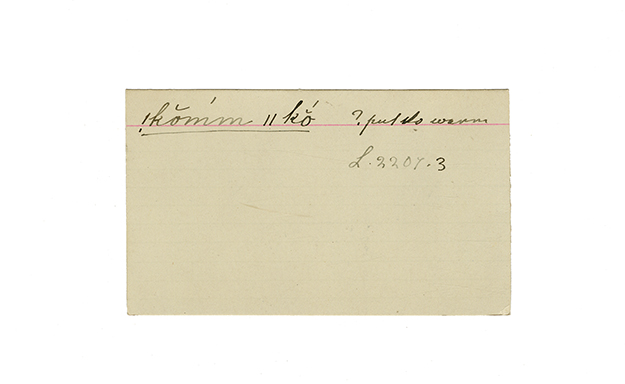 !kŏmḿ ǁkŏ́ ? put to warm
L. 2207. 3